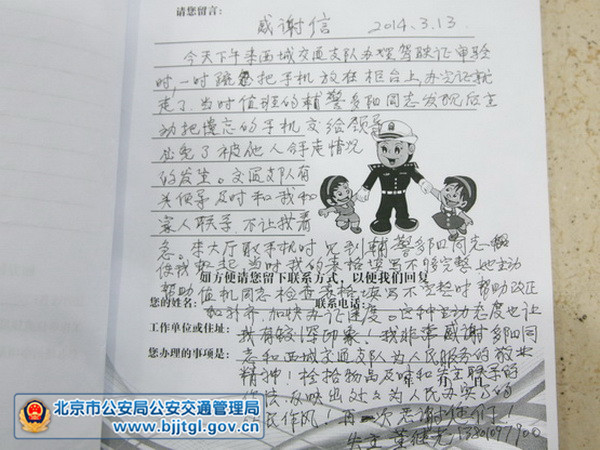 请您留言：
感谢信 2014.3.13
今天下午来西城交通支队办理驾驶证审验
时,一时疏忽把手机放在柜台上,办完证就
走了.当时值班的辅警多阳同志发现后主
动把遗忘的手机交给领导
避免了被他人拿走情况
的发生。交通支队有
关领导及时和我和
家人联系 不让我着
急。来大厅取手机时 见到辅警多阳同志
使我想起 当时我的表格填写不够完整 她主动
如方便请您留下联系方式，以便我们回复
帮助值机同志检查表格 填写不完整时帮助改正
您的姓名： 联系电话：
和补齐.加快办证速度。这种主动态度也让
工作单位或住址：
我有较深印象！我非常感谢多阳同
您办理的事项是：
志和西城交通支队为人民服务的敬业
年 月 日
精神！捡拾物品及时和失主联系的
反映出处处为人民办实事的
民作风！再一次感谢你们！
失主 董继光 13301077900
北京市公安局公安交通管理局
www.bjjtgl.gov.cn